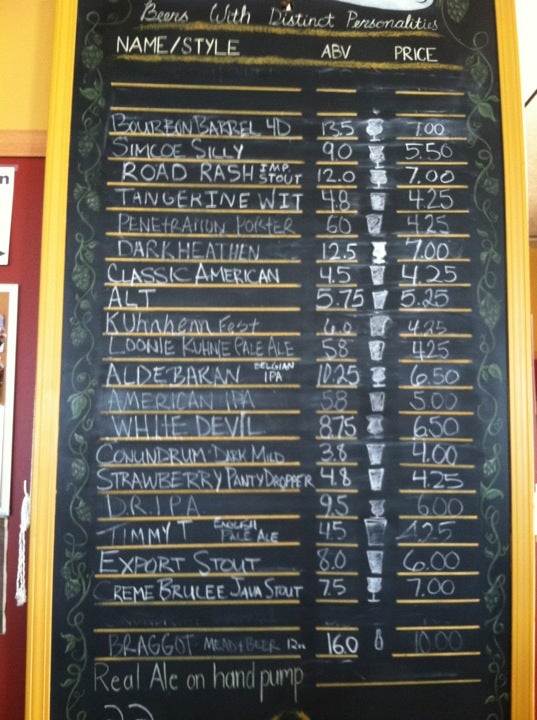 Beers With Distinct Personalities
NAME/STYLE ABV PRICE
BOURBON BARREL 4D 13.5 7.00
SIMCOE SILLY 9.0 5.50
ROAD RASH IMP. STOUT 12.0 7.00
TANGERINE WIT 4.8 4.25
PENETRATION PORTER 6.0 4.25
DARK HEATHEN 12.5 7.00
CLASSIC AMERICAN 4.5 4.25
ALT 5.75 5.25
Kuhnhenn Fest 6.0 4.25
LOONIE KUHNIE PALE ALE 5.8 4.25
ALDEBARAN BELGIAN IPA 10.25 6.50
AMERICAN IPA 5.8 5.00
WHITE DEVIL 8.75 6.50
CONUNDRUM DARK MILD 3.8 4.00
STRAWBERRY PANTY DROPPER 4.8 4.25
D.R.I.P.A. 9.5 6.00
TIMMY T ENGLISH PALE ALE 4.5 4.25
EXPORT STOUT 8.0 6.00
CREME BRULEE JAVA STOUT 7.5 7.00
BRAGGOT MEAD+BEER 12oz 16.0 10.00
Real Ale on hand pump
n